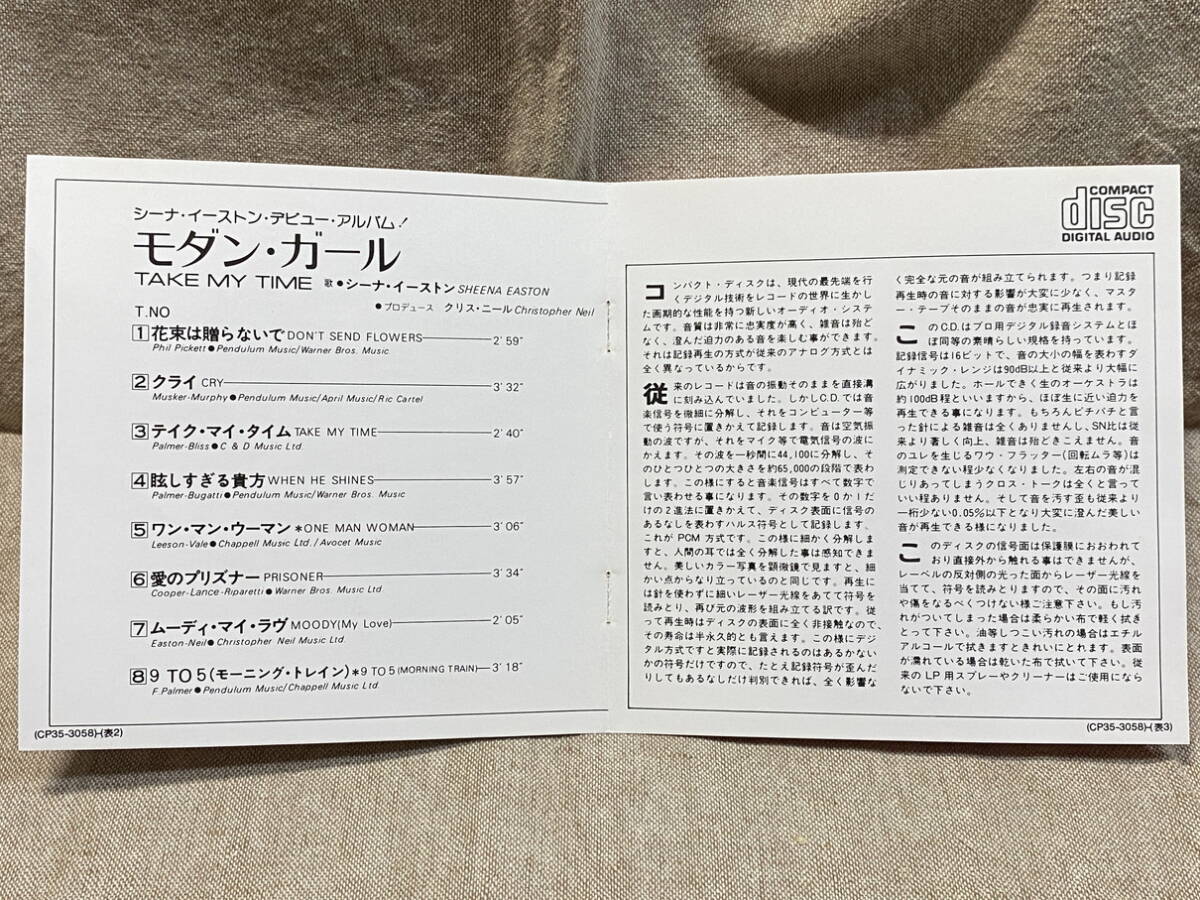 シーナ・イーストン・デビュー・アルバム!
モダン・ガール
TAKE MY TIME 歌●シーナ・イーストン SHEENA EASTON
●プロデュース クリス・ニール Christopher Neil
T.NO
1 花束は贈らないで DON'T SEND FLOWERS 2′59″
Phil Pickett●Pendulum Music/Warner Bros. Music
2 クライ CRY 3′32″
Musker-Murphy●Pendulum Music/April Music/Ric Cartel
3 テイク・マイ・タイム TAKE MY TIME 2′40″
Palmer-Bliss●C & D Music Ltd.
4 眩しすぎる貴方 WHEN HE SHINES 3′57″
Palmer-Bugatti●Pendulum Music/Warner Bros. Music
5 ワン・マン・ウーマン *ONE MAN WOMAN 3′06″
Leeson-Vale●Chappell Music Ltd./Avocet Music
6 愛のプリズナー PRISONER 3′34″
Cooper-Lance-Riparetti●Warner Bros. Music Ltd.
7 ムーディ・マイ・ラヴ MOODY(My Love) 2′05″
Easton-Neil●Christopher Neil Music Ltd.
8 9 TO 5(モーニング・トレイン)*9 TO 5(MORNING TRAIN) 3′18″
F.Palmer●Pendulum Music/Chappell Music Ltd.
(CP35-3058)-(表2)
COMPACT
disc
DIGITAL AUDIO
コンパクト・ディスクは、現代の最先端を行
くデジタル技術をレコードの世界に生かし
た画期的な性能を持つ新しいオーディオ・システ
ムです。音質は非常に忠実度が高く、雑音は殆ど
なく、澄んだ迫力のある音を楽しむ事ができます。
それは記録再生の方式が従来のアナログ方式とは
全く異なっているからです。
従来のレコードは音の振動そのままを直接溝
に刻み込んでいました。しかしC.D.では音
楽信号を微細に分解し、それをコンピューター等
で使う符号に置きかえて記録します。音は空気振
動の波ですが、それをマイク等で電気信号の波に
かえます。その波を一秒間に44,100に分解し、そ
のひとつひとつの大きさを約65,000の段階で表わ
します。この様にすると音楽信号はすべて数字で
言い表わせる事になります。その数字を0か1だ
けの2進法に置きかえて、ディスク表面に信号の
あるなしを表わすパルス符号として記録します。
これがPCM方式です。この様に細かく分解しま
すと、人間の耳では全く分解した事は感知できま
せん。美しいカラー写真を顕微鏡で見ますと、細
かい点からなり立っているのと同じです。再生に
は針を使わずに細いレーザー光線をあてて符号を
読みとり、再び元の波形を組み立てる訳です。従
って再生時はディスクの表面に全く非接触なので、
その寿命は半永久的とも言えます。この様にデジ
タル方式ですと実際に記録されるのはあるかない
かの符号だけですので、たとえ記録符号が歪んだ
りしてもあるなしだけ判別できれば、全く影響な
く完全な元の音が組み立てられます。つまり記録
再生時の音に対する影響が大変に少なく、マスタ
ー・テープそのままの音が忠実に再生されます。
このC.D.はプロ用デジタル録音システムとほ
ぼ同等の素晴らしい規格を持っています。
記録信号は16ビットで、音の大小の幅を表わすダ
イナミック・レンジは90dB以上と従来より大幅に
広がりました。ホールできく生のオーケストラは
約100dB程といいますから、ほぼ生に近い迫力を
再生できる事になります。もちろんピチパチと言
った針による雑音は全くありませんし、SN比は従
来より著しく向上、雑音は殆どきこえません。音
のユレを生じるワウ・フラッター(回転ムラ等)は
測定できない程少なくなりました。左右の音が混
じりあってしまうクロス・トークは全くと言って
いい程ありません。そして音を汚す歪も従来より
一桁少ない0.05%以下となり大変に澄んだ美しい
音が再生できる様になりました。
このディスクの信号面は保護膜におおわれて
おり直接外から触れる事はできませんが、
レーベルの反対側の光った面からレーザー光線を
当てて、符号を読みとりますので、その面に汚れ
や傷をなるべくつけない様ご注意下さい。もし汚
れがついてしまった場合は柔らかい布で軽く拭き
とって下さい。油等しつこい汚れの場合はエチル
アルコールで拭きますときれいにとれます。表面
が濡れている場合は乾いた布で拭いて下さい。従
来のLP用スプレーやクリーナーはご使用になら
ないで下さい。
(CP35-3058)-(表3)